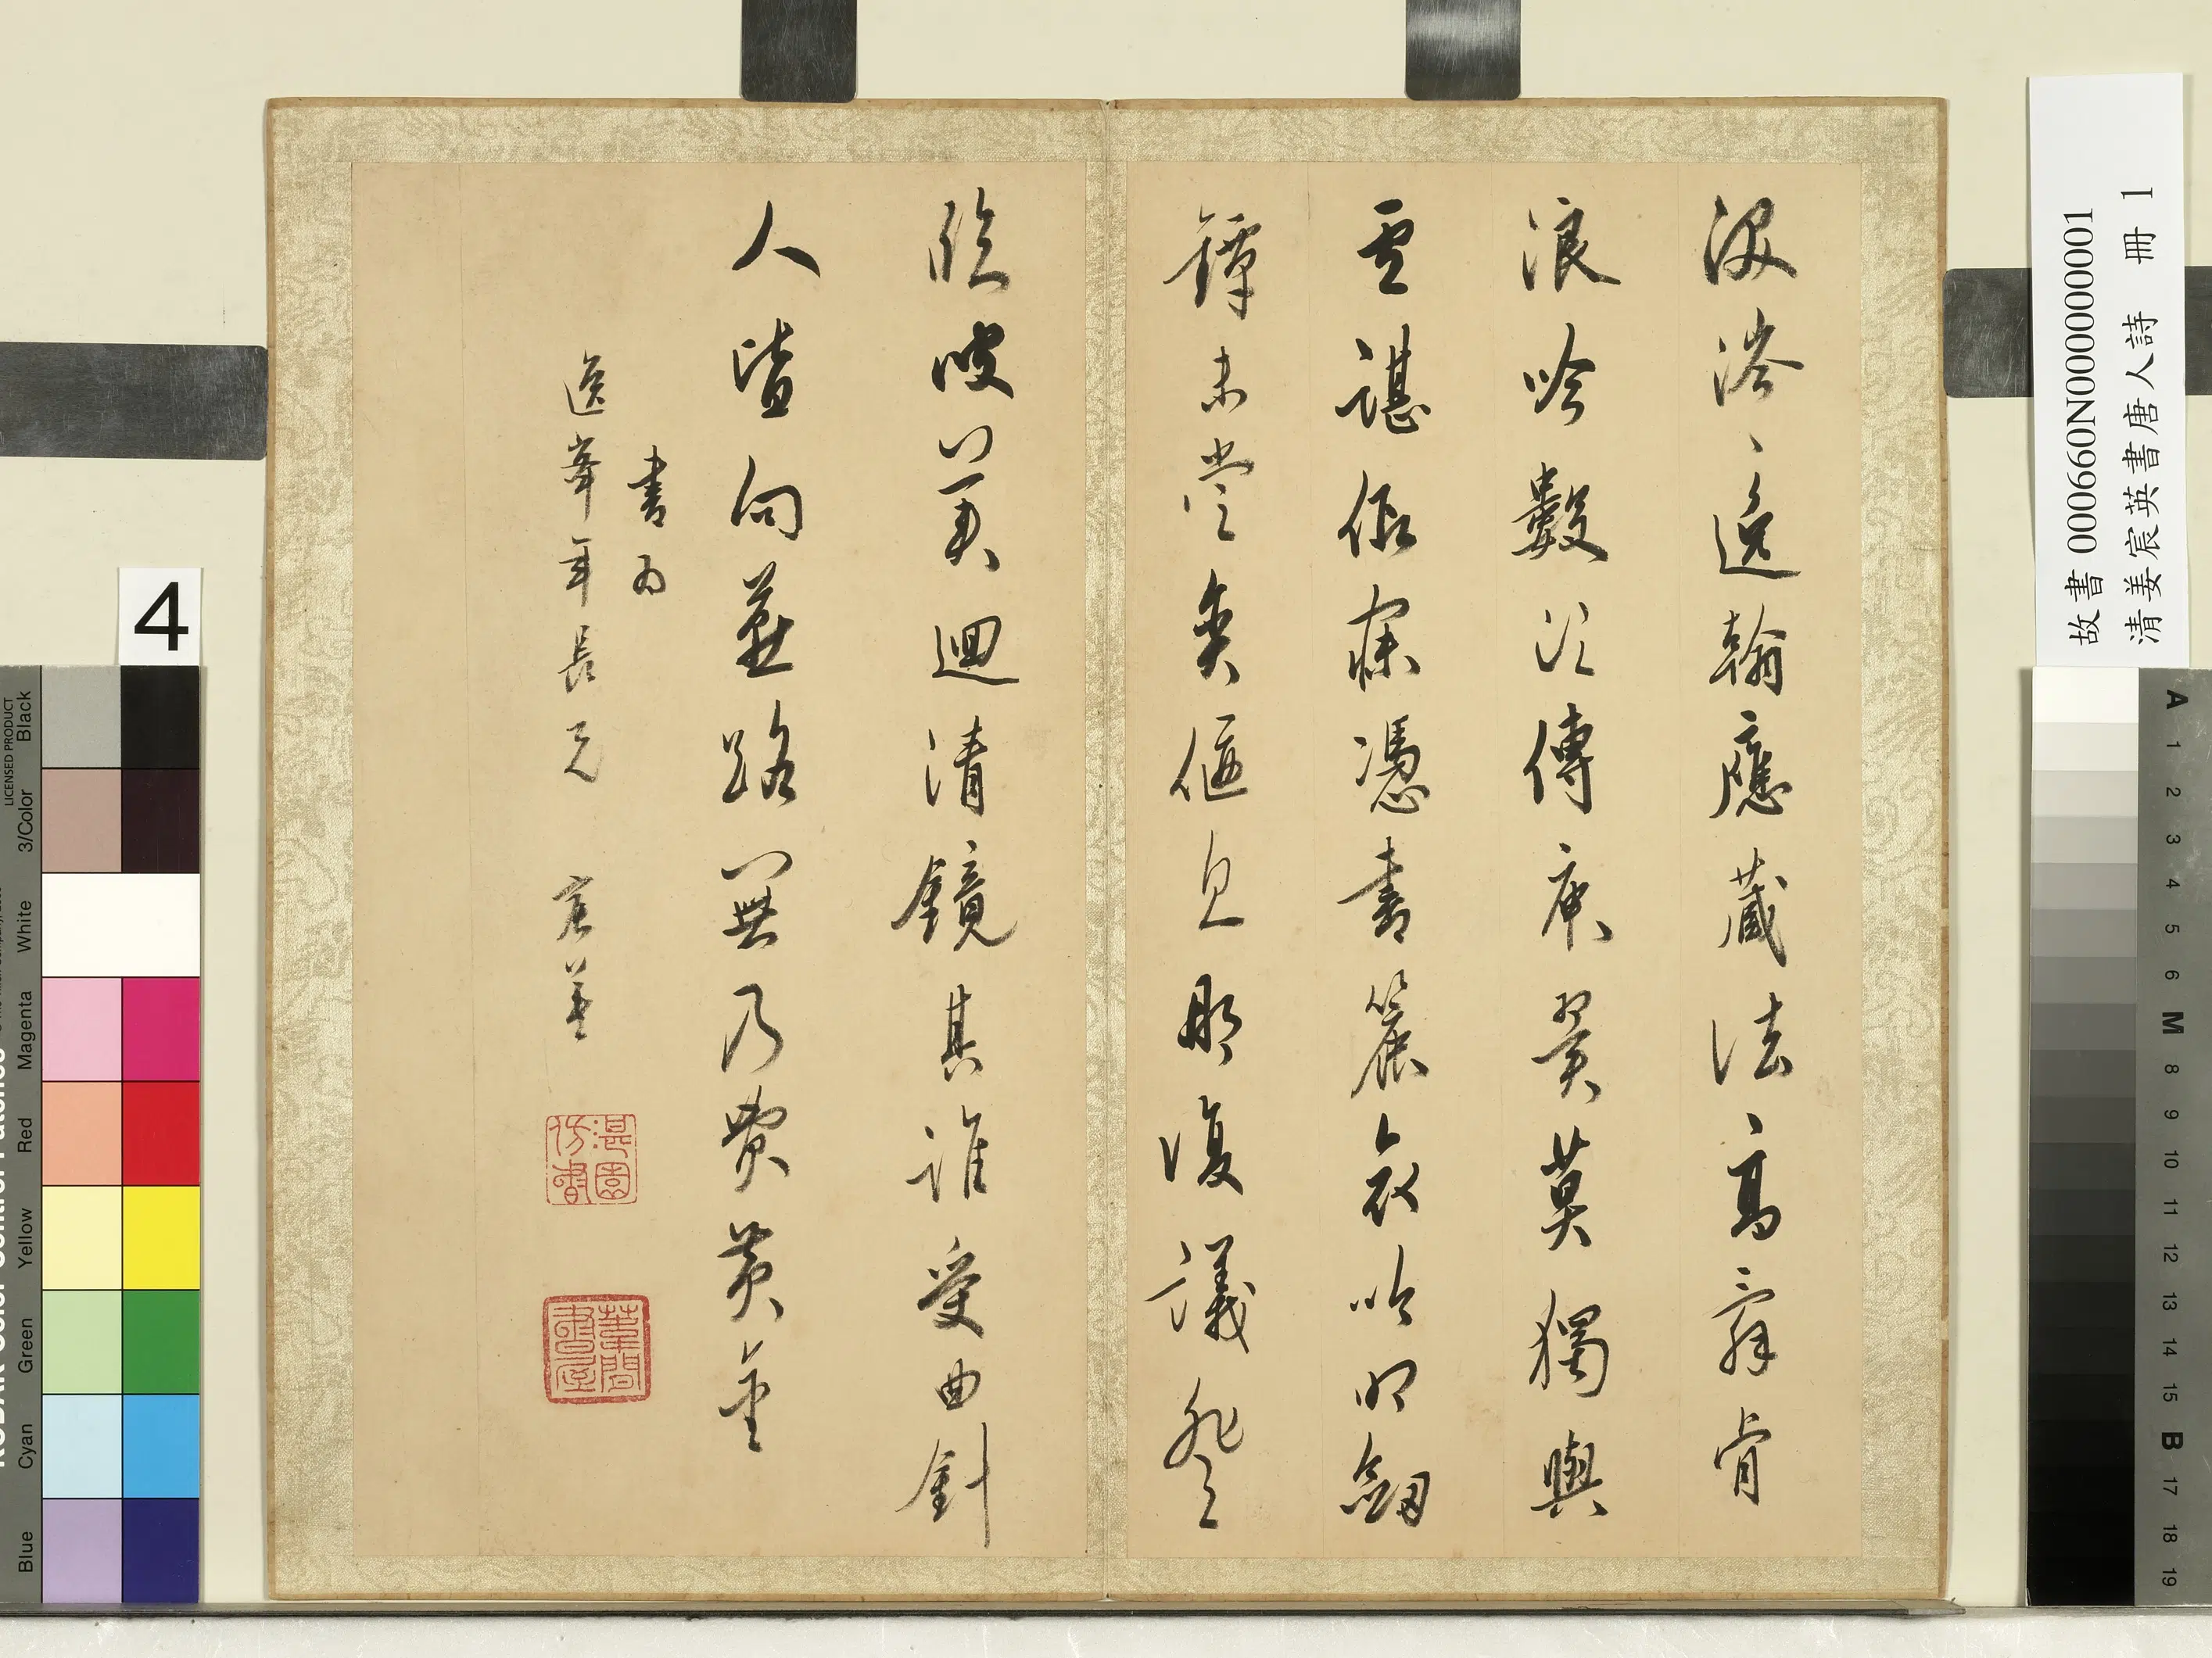 淚涔、逸翰應藏法、高辭肯
浪吟數須傳庾翼莫獨與
盧諶假寐憑書簏哀吟叩劔
鐔未嘗貪偃息那復議登
臨彼美迴清鏡其誰受曲針
人皆向燕路無乃費黃金
書為
逸峯年長兄 宸英
湛園仿書
葦間書屋
故書 000660N000000001
清姜宸英書唐人詩 冊 1
4
LICENSED PRODUCT
Black
3/Color
White
Magenta
Red
Yellow
Green
Cyan
Blue
A 1 2 3 4 5 6 M 8 9 10 11 12 13 14 15 B 17 18 19